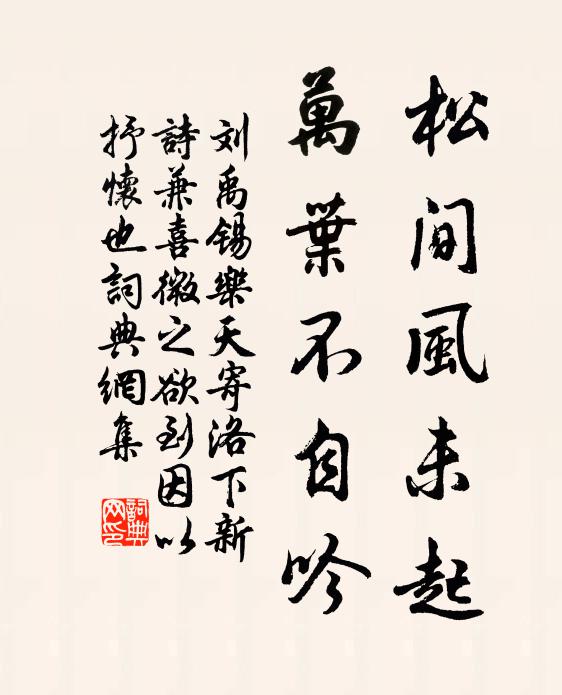 松間風未起
萬葉不自吟
刘禹锡樂天寄洛下新
詩兼喜微之欲到因以
抒懷也詞典網集
詞典
网印